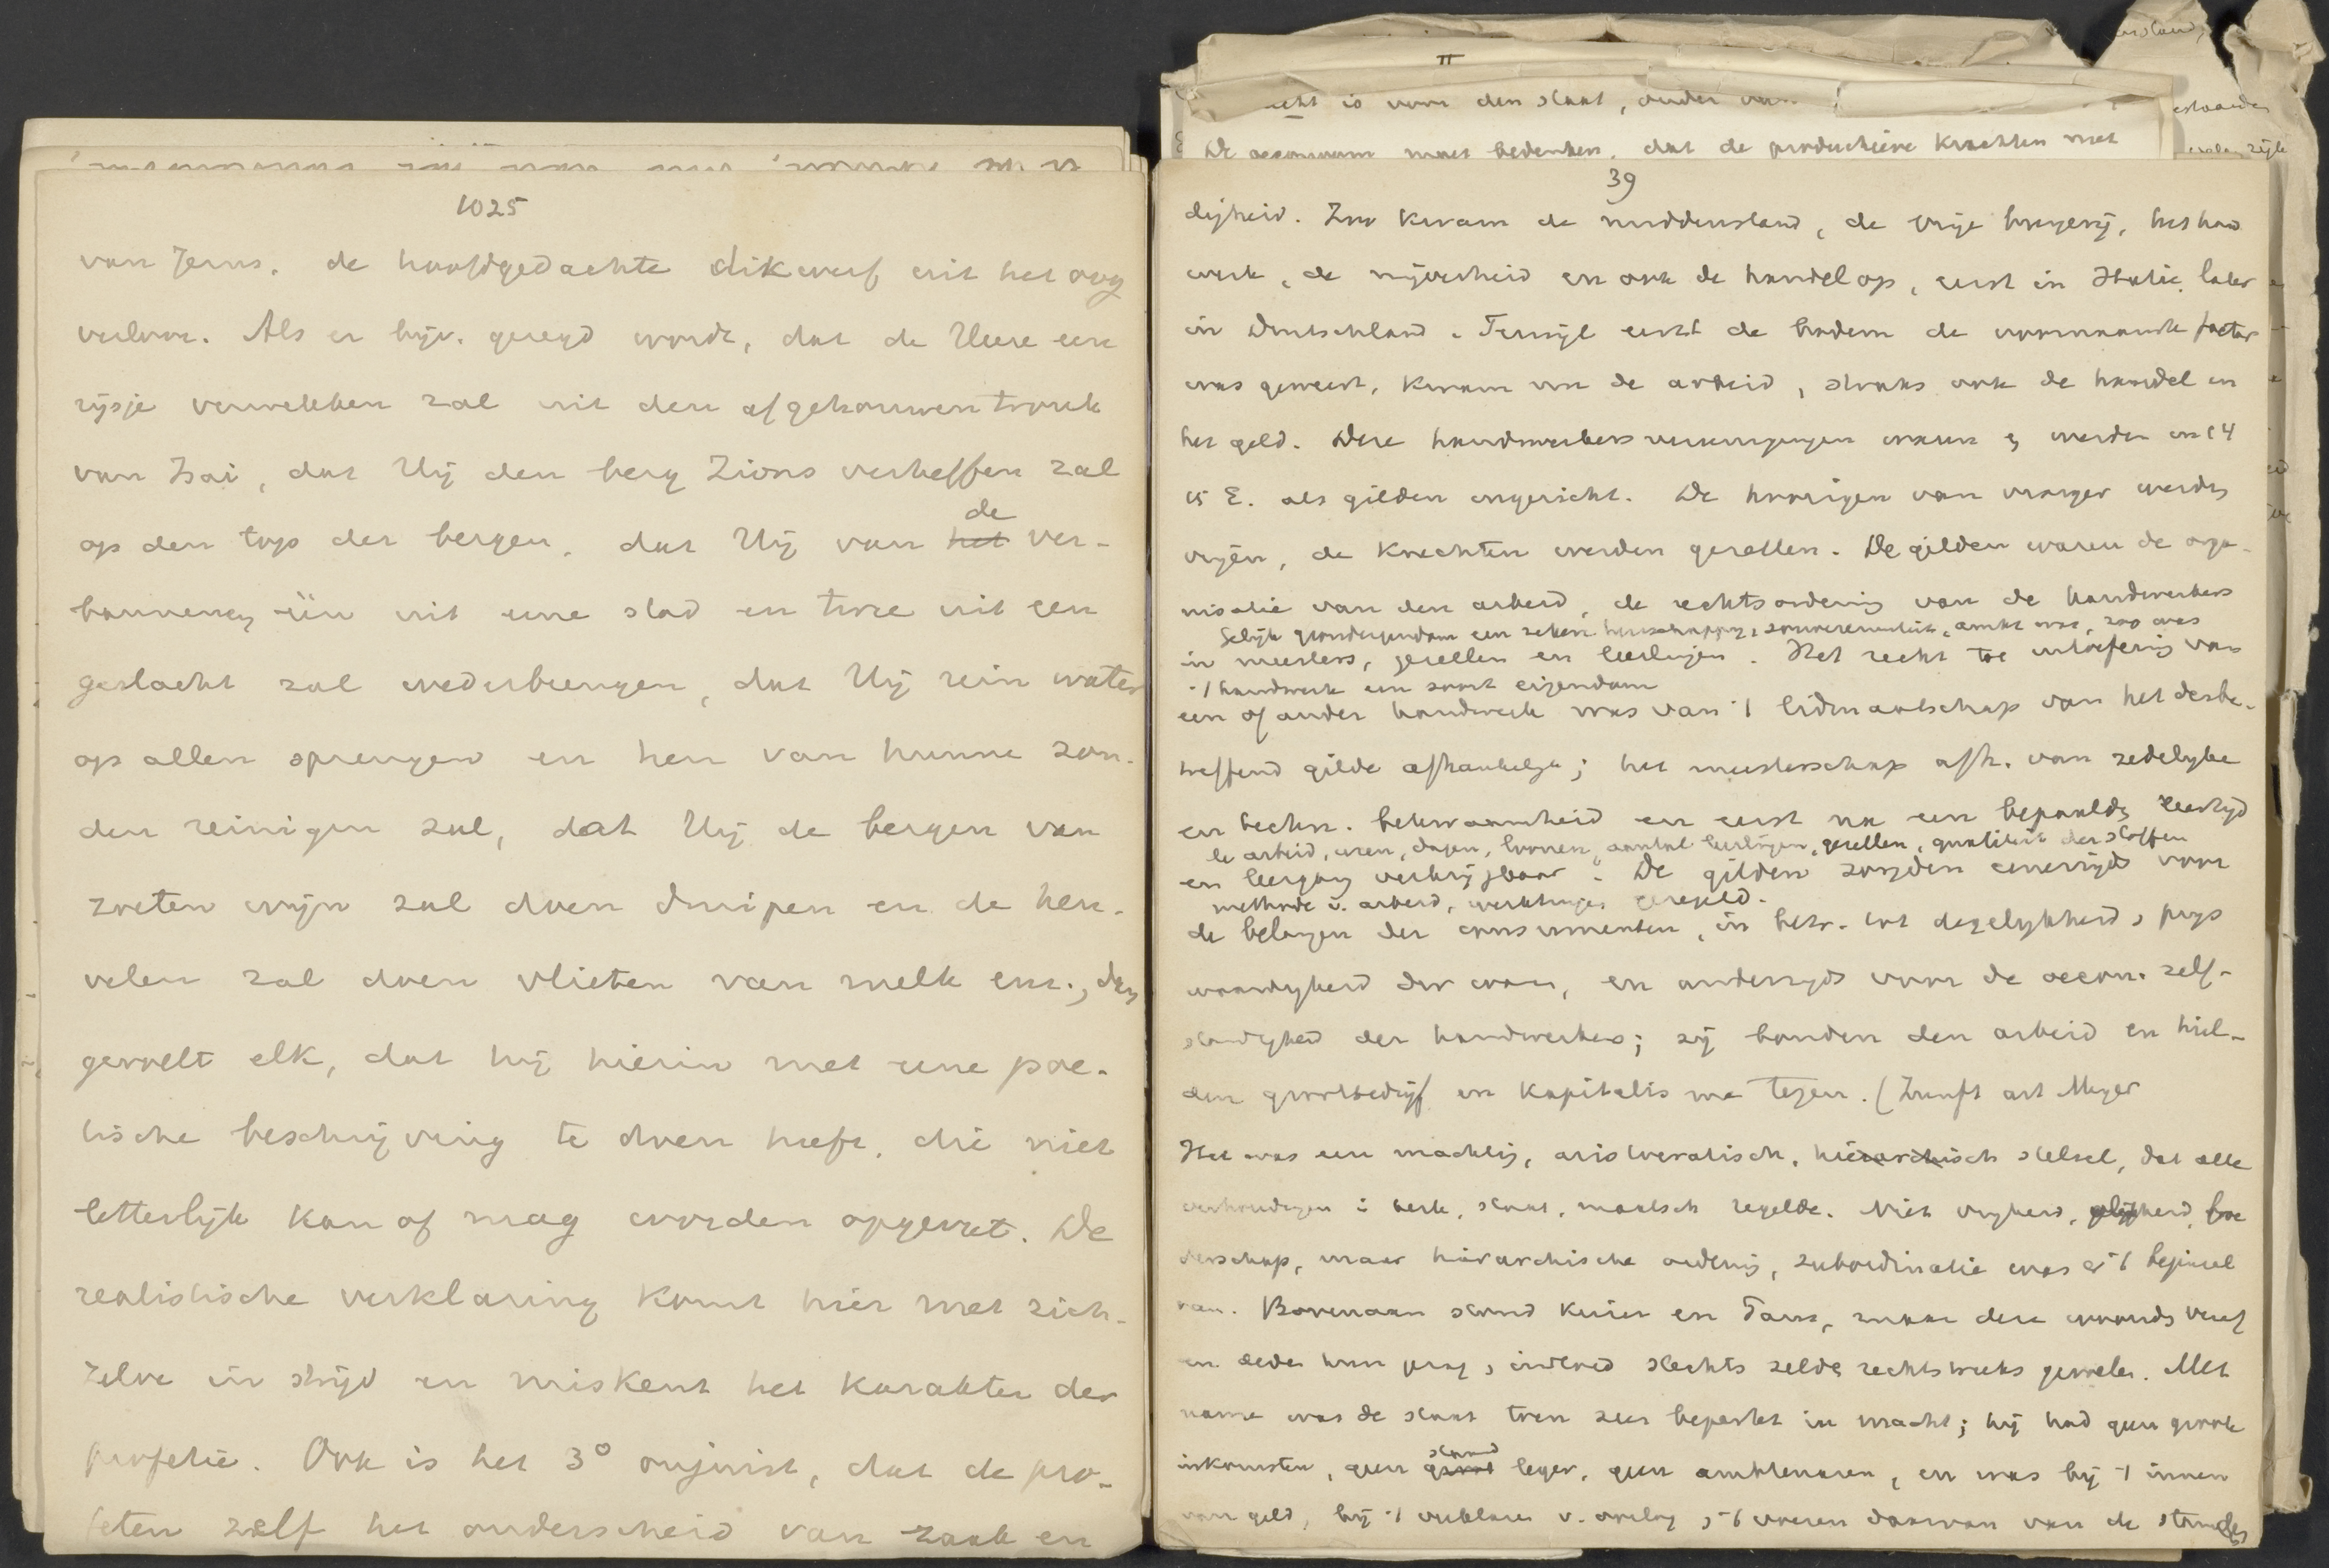 1025
van Jerus. de hoofdgedachte dikwerf uit het oog
verloor. Als er bijv. gezegd wordt, dat de Heere een
rijsje verwekken zal uit den afgehouwen tronk
van Isai, dat Hij den berg Zions verheffen zal
op den top der bergen, dat Hij van het de ver-
bannenen één uit eene stad en twee uit een
geslacht zal wederbrengen, dat Hij rein water
op allen sprengen en hen van hunne zon-
den reinigen zal, dat Hij de bergen van
zoeten wijn zal doen druipen en de heu-
velen zal doen vlieten van melk enz., dan
gevoelt elk, dat hij hierin met eene poë-
tische beschrijving te doen heeft, die niet
letterlijk kan of mag worden opgevat. De
realistische verklaring komt hier met zich-
zelve in strijd en miskent het karakter der
profetie. Ook is het 3° onjuist, dat de pro-
feten zelf het onderscheid van zaak en
II
is voor den staat, onder
De oeconoom moet bedenken, dat de productieve krachten met
39
digheid. Zoo kwam de middenstand, de vrije burgerij, het hand
werk, de nijverheid en ook de handel op, eerst in Italie, later
in Duitschland. Terwijl eerst de bodem de voornaamste factor
was geweest, kwam nu de arbeid, straks ook de handel en
het geld. Deze handwerkersvereenigingen werden in 14
15 E. als gilden ingericht. De hoorigen van vroeger werden
vrijen, de knechten werden gezellen. De gilden waren de orga-
nisatie van den arbeid, de rechtsordening van de handwerkers
Gelijk grondeigendom een zekere heerschappij, souvereiniteit, ambt was, zoo was
in meesters, gezellen en leerlingen. Het recht tot uitoefening van
't handwerk een soort eigendom
een of ander handwerk was van 't lidmaatschap van het desbe-
treffend gilde afhankelijk; het meesterschap afh. van zedelijke
en techn. bekwaamheid en eerst na een bepaalde leertijd
arbeid, uren, dagen, loonen, aantal leerlingen, gezellen, qualiteit der stoffen
en leergang verkrijgbaar. De gilden zorgden eenerzijds voor
methode v. arbeid, werktuigen geregeld.
de belangen der consumenten, in betr. tot degelijkheid, prijs
waardigheid der waar, en anderzijds voor de oecon. zelf-
standigheid der handwerkers; zij bonden den arbeid en hiel-
den grootbedrijf en kapitalisme tegen. (Zunft art Meyer
Het was een machtig, aristocratisch, hierarchisch stelsel, dat alle
verhoudingen in kerk, staat, maatsch regelde. Niet vrijheid, gelijkheid, broe
derschap, maar hierarchische ordening, subordinatie was er 't beginsel
van. Bovenaan stond Keizer en Paus,
Met
name was de staat toen zeer beperkt in macht; hij had geen groote
inkomsten, geen staand leger, geen ambtenaren, en was bij 't innen
van geld, bij 't verklaren v. oorlog, 't voeren daarvan van de standen